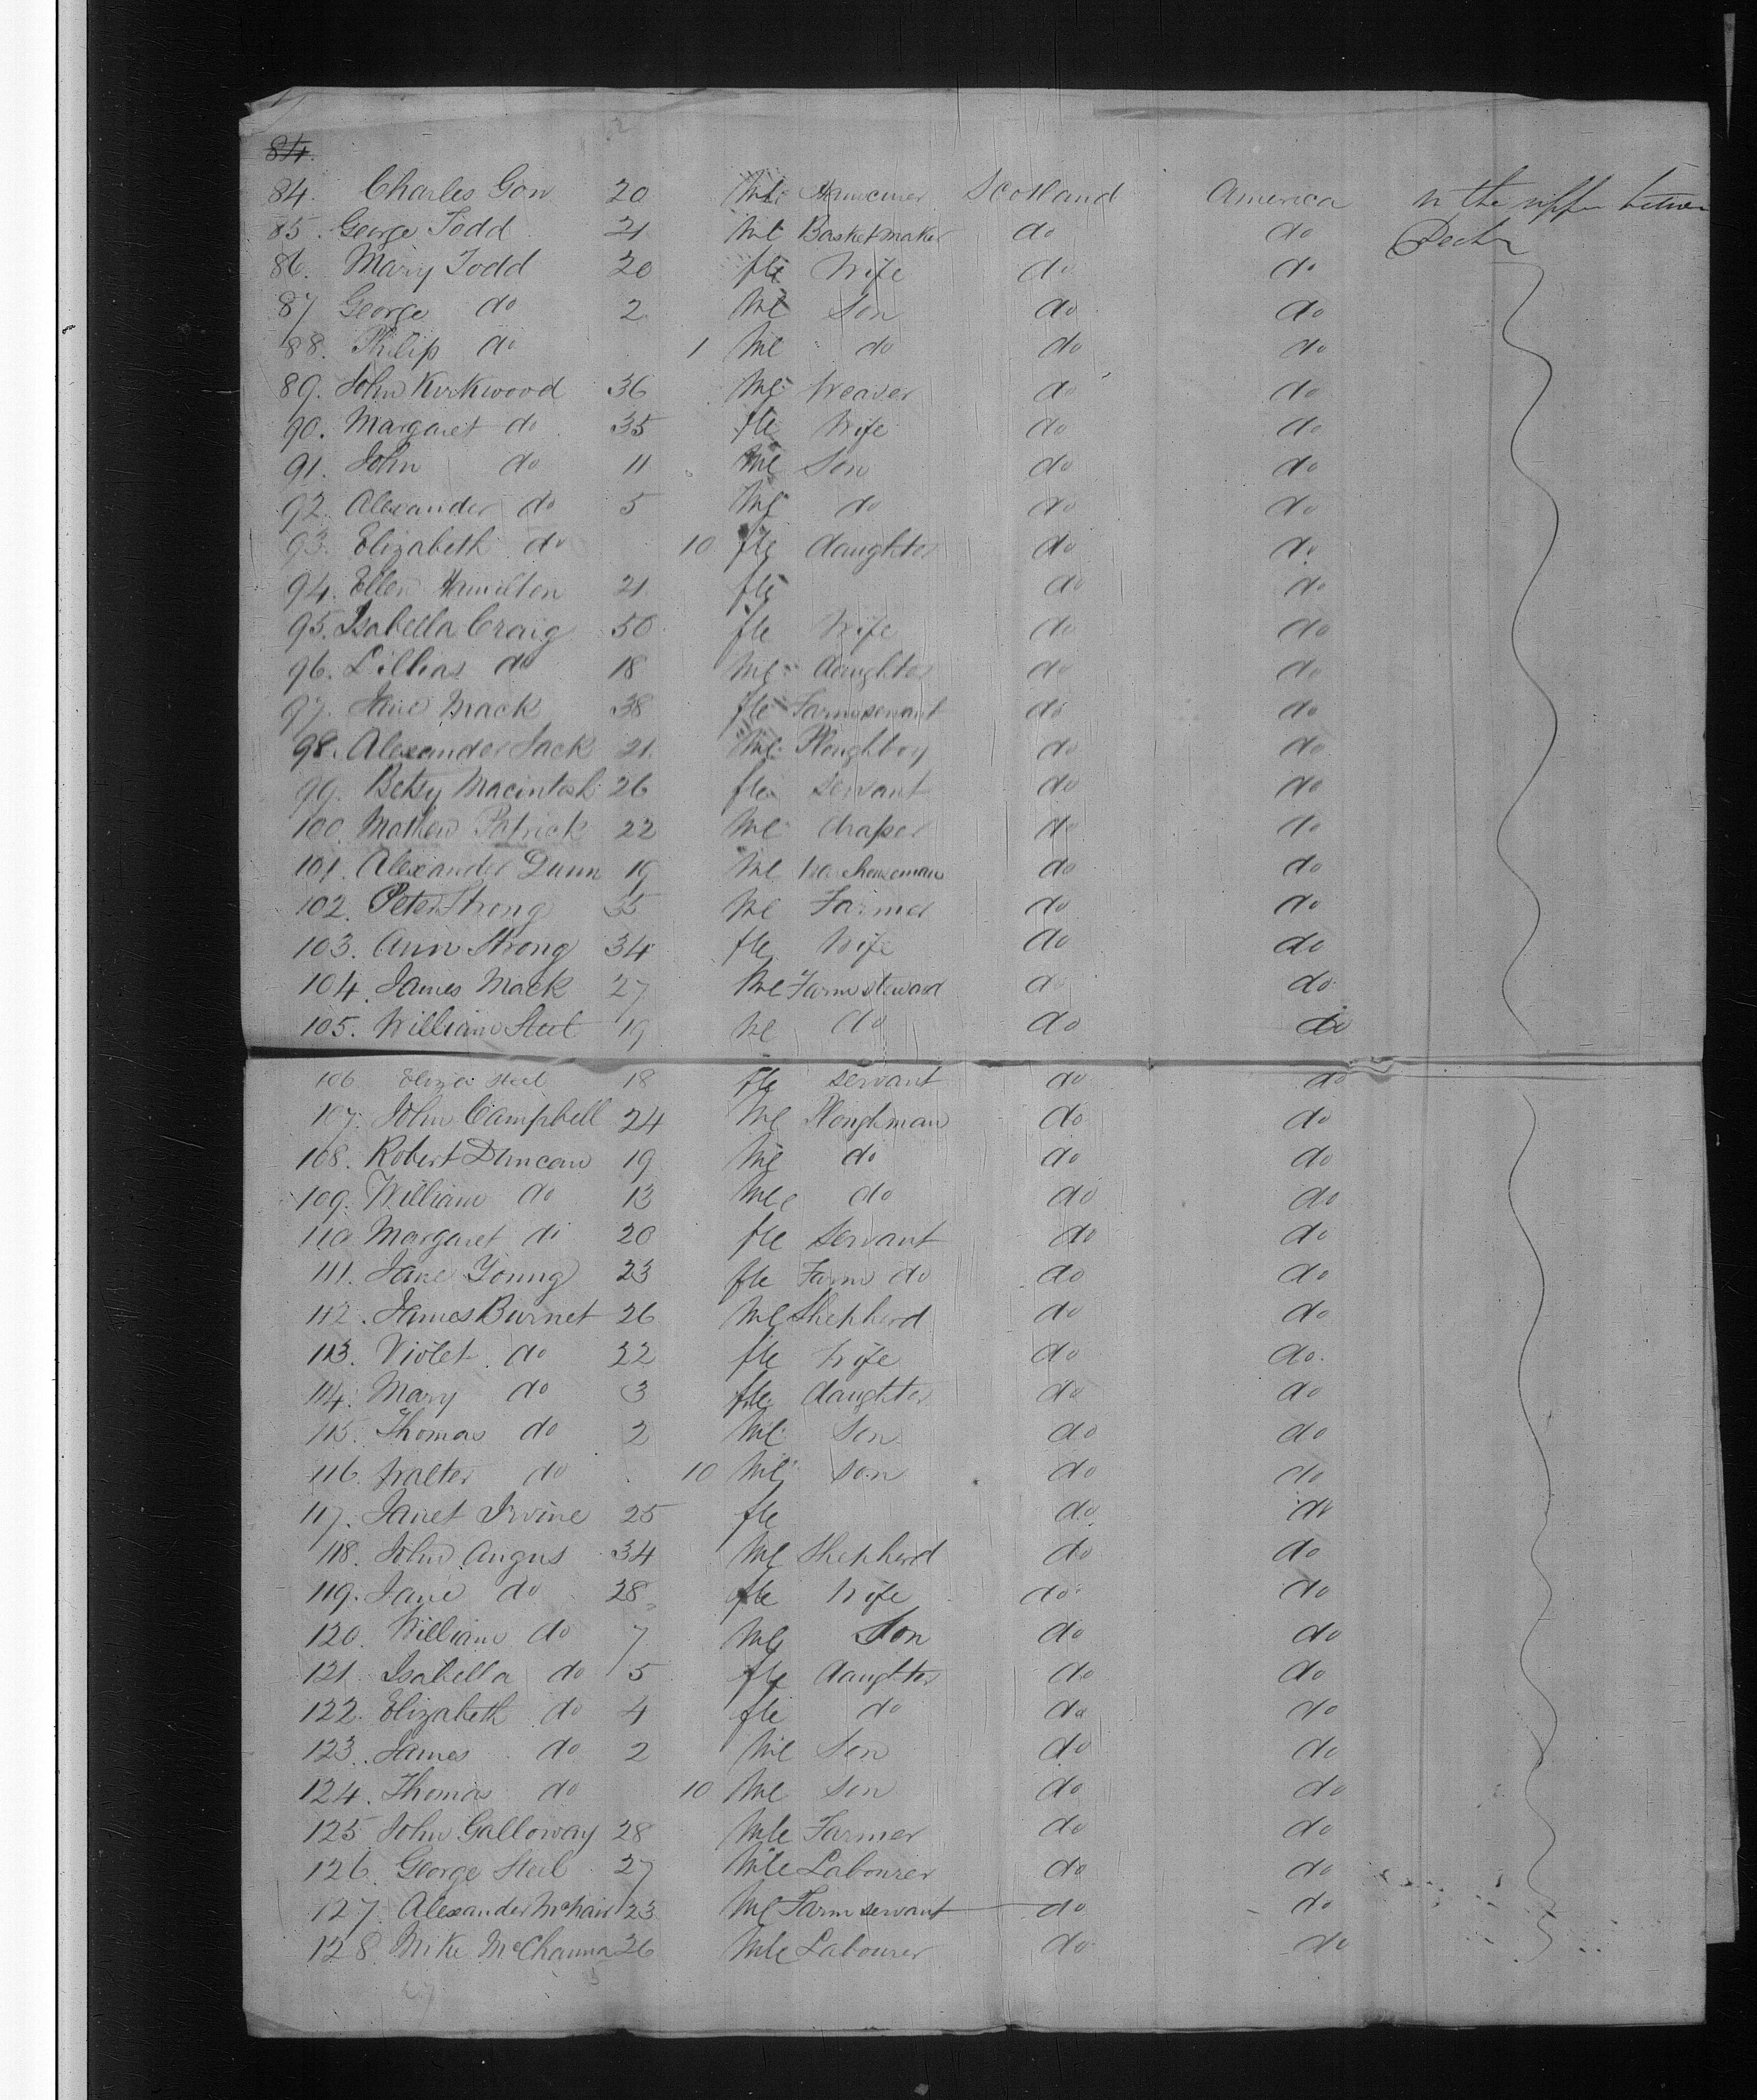 84.
84. Charles Gow 20 Mle Scotland America In the upper between
85. George Todd 21 Mle Basket maker do do Decks
86. Mary Todd 20 fle Wife do do
87 George do 2 Mle Son do do
88. Philip do 1 Mle do do do
89. John Kirkwood 36 Mle Weaver do do
90. Margaret do 35 fle Wife do do
91. John do 11 Mle Son do do
92. Alexander do 5 Mle do do do
93. Elizabeth do 10 fle daughter do do
94. Ellen Hamilton 21 fle do do
95. Isabella Craig 50 fle Wife do do
96. Lillias do 18 Mle daughter do do
97. Jane Mack 38 fle Farm servant do do
98. Alexander Jack 21 Mle Ploughboy do do
99. Betsy Macintosh 26 fle Servant do do
100 Mathew Patrick 22 Mle draper do do
101. Alexander Dunn 19 Mle Warehouseman do do
102. Peter Strong 35 Mle Farmer do do
103. Ann Strong 34 fle Wife do do
104. James Mack 27 Mle Farm steward do do
105. William Steel 19 Mle do do do
106 Eliza Steel 18 fle servant do do
107. John Campbell 24 Mle Ploughman do do
108. Robert Duncan 19 Mle do do do
109. William do 13 Mle do do do
110 Margaret do 20 fle servant do do
111. Jane Young 23 fle Farm do do do
112. James Burnet 26 Mle Shepherd do do
113. Violet do 22 fle Wife do do
114. Mary do 3 fle daughter do do
115. Thomas do 2 Mle Son do do
116. Walter do 10 Mle son do do
117. Janet Irvine 25 fle do do
118. John Angus 34 Mle Shepherd do do
119. Jane do 28 fle Wife do do
120. William do 7 Mle Son do do
121. Isabella do 5 fle daughter do do
122. Elizabeth do 4 fle do do do
123. James do 2 Mle Son do do
124. Thomas do 10 Mle Son do do
125. John Galloway 28 Mle Farmer do do
126. George Steel 27 Mle Labourer do do
127. Alexander McNair 23 Mle Farm servant do do
128. Mike McChanna 26 Mle Labourer do do